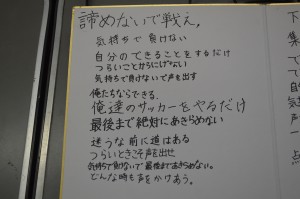 諦めないで戦え。
気持ちで負けない
自分のできることをするだけ
つらいことからにげない
気持ちで負けないで声を出す
俺たちならできる。
俺達のサッカーをやるだけ
最後まで絶対にあきらめない
迷うな前に道はある
つらいときこそ声を出せ
気持ちで負けないで最後まであきらめない。
どんな時も声をかけあう。
下
集
で
自
点